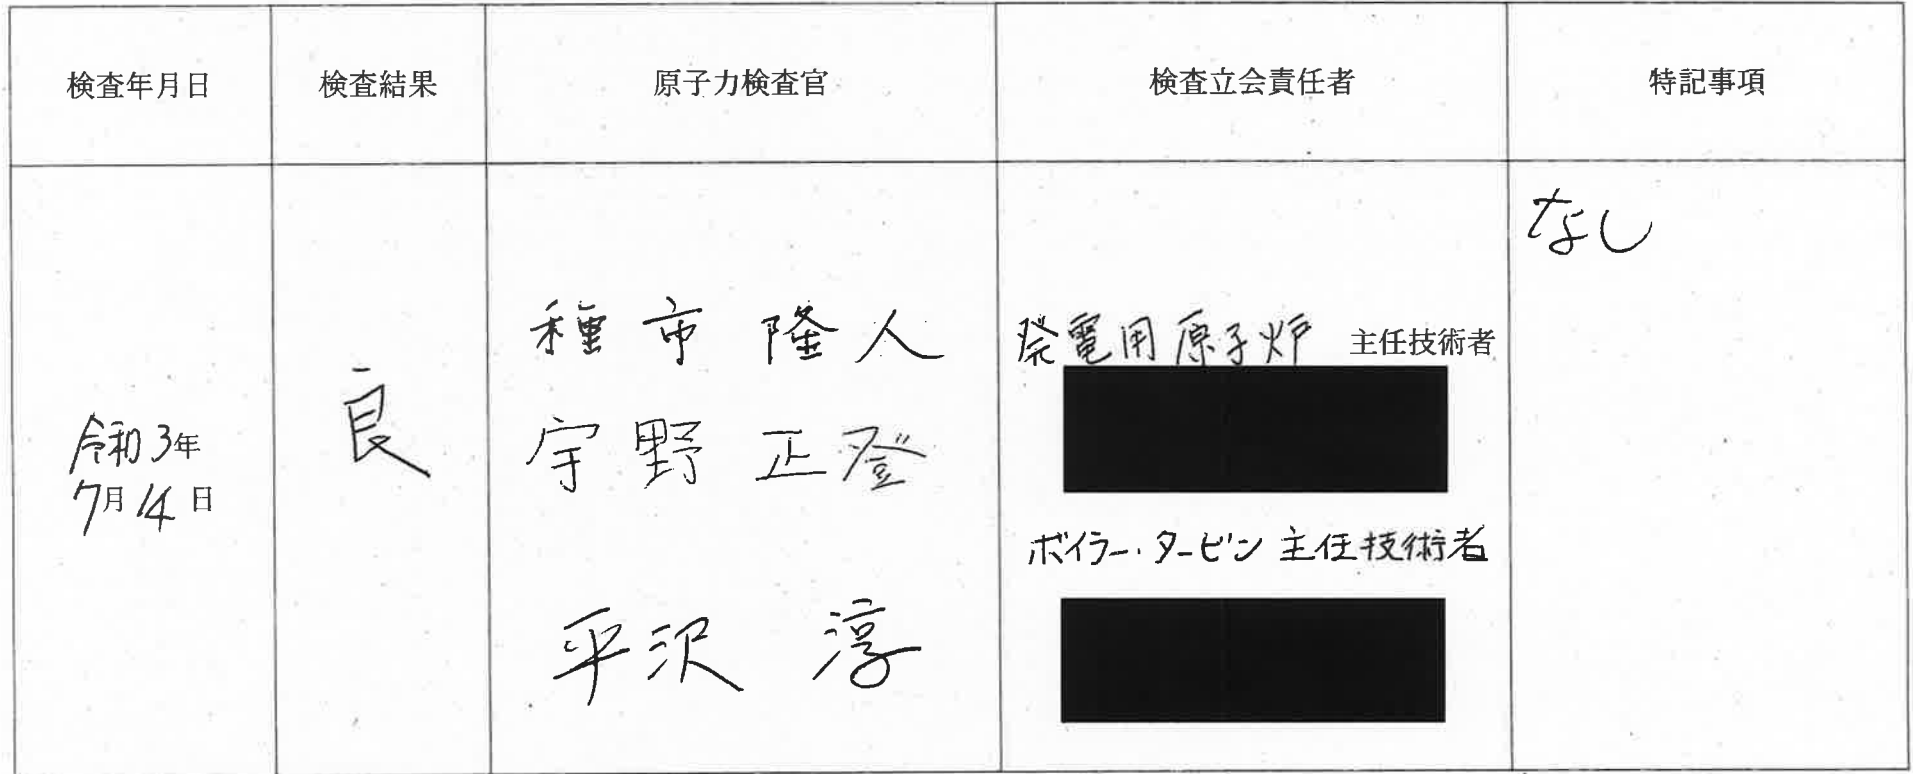 検査年月日 検査結果 原子力検査官 検査立会責任者 特記事項
令和3年
7月14日
良
種市 隆人
宇野 正登
平沢 淳
発電用原子炉 主任技術者
ボイラー・タービン 主任技術者
なし